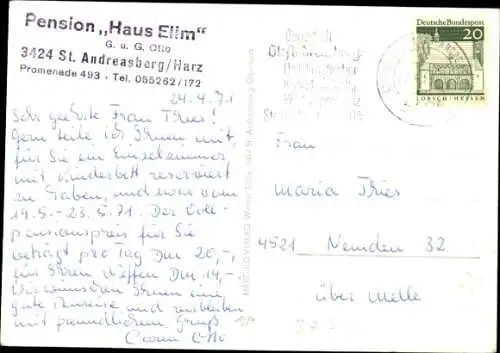 Pension „Haus Elim“
G. u. G. Otto
3424 St. Andreasberg/Harz
Promenade 493 · Tel. 055262/172
24.4.71
Sehr geehrte Frau Thies!
Gern teile ich Ihnen mit,
für Sie ein Einzelzimmer
mit Kinderbett reserviert
zu haben, und zwar vom
19.5. - 23.5.71. Der Voll-
pensionspreis für Sie
beträgt pro Tag DM 20,-,
für Ihren Neffen DM 14,-.
Wir wünschen Ihnen eine
gute Anreise und verbleiben
mit freundlichem Gruß
Otto
Deutsche Bundespost
20
LORSCH · HESSEN
Frau
Maria Thies
4521 Nemden 32
über Melle